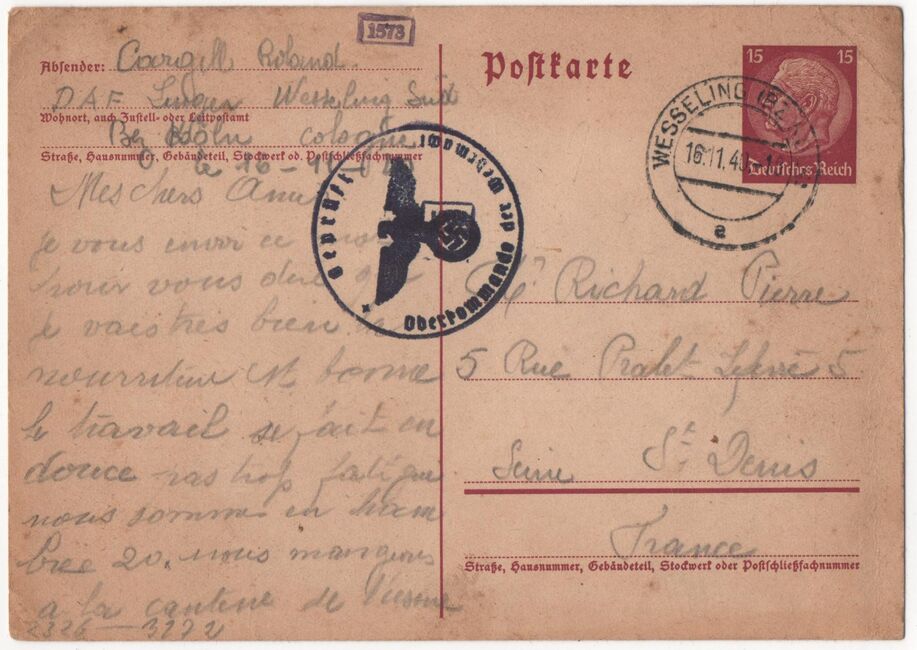 1573
Absender: Roland
Postkarte
15 15
Deutsches Reich
D.A.F. Wesseling Süd
Wohnort, auch Zustell- oder Leitpostamt
Bez Köln Cologne
Straße, Hausnummer, Gebäudeteil, Stockwerk od. Postschließfachnummer
le 16-11-
WESSELING
16.11.4
a
Geprüft
Oberkommando der Wehrmacht
Mes chers Amis
je vous envoi ce mot
pour vous dire que
je vais tres bien la
nourriture est bonne
le travail se fait en
douce pas trop fatigué
nous sommes en cham
bre 20. nous mangeons
a la cantine de
2326 — 3272
Mr Richard Pierre
5 Rue 5
Seine St Denis
France
Straße, Hausnummer, Gebäudeteil, Stockwerk oder Postschließfachnummer